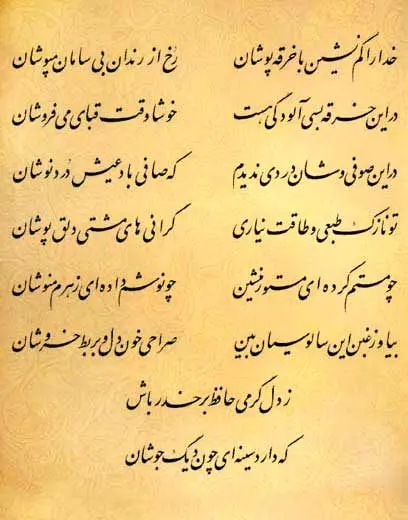 خدا را کم نشین با خرقه پوشان رخ از رندان بی سامان مپوشان
در این خرقه بسی آلودگی هست خوشا وقت قبای می فروشان
در این صوفی وشان دردی ندیدم که صافی باد عیش دُردنوشان
تو نازک طبعی و طاقت نیاری گرانی های مشتی دلق پوشان
چو مستم کرده ای مستور منشین چو نوشم داده ای زهرم منوشان
بیا وز غبن این سالوسیان بین صراحی خون دل و بربط خروشان
ز دل گرمی حافظ بر حذر باش
که دارد سینه ای چون دیگ جوشان